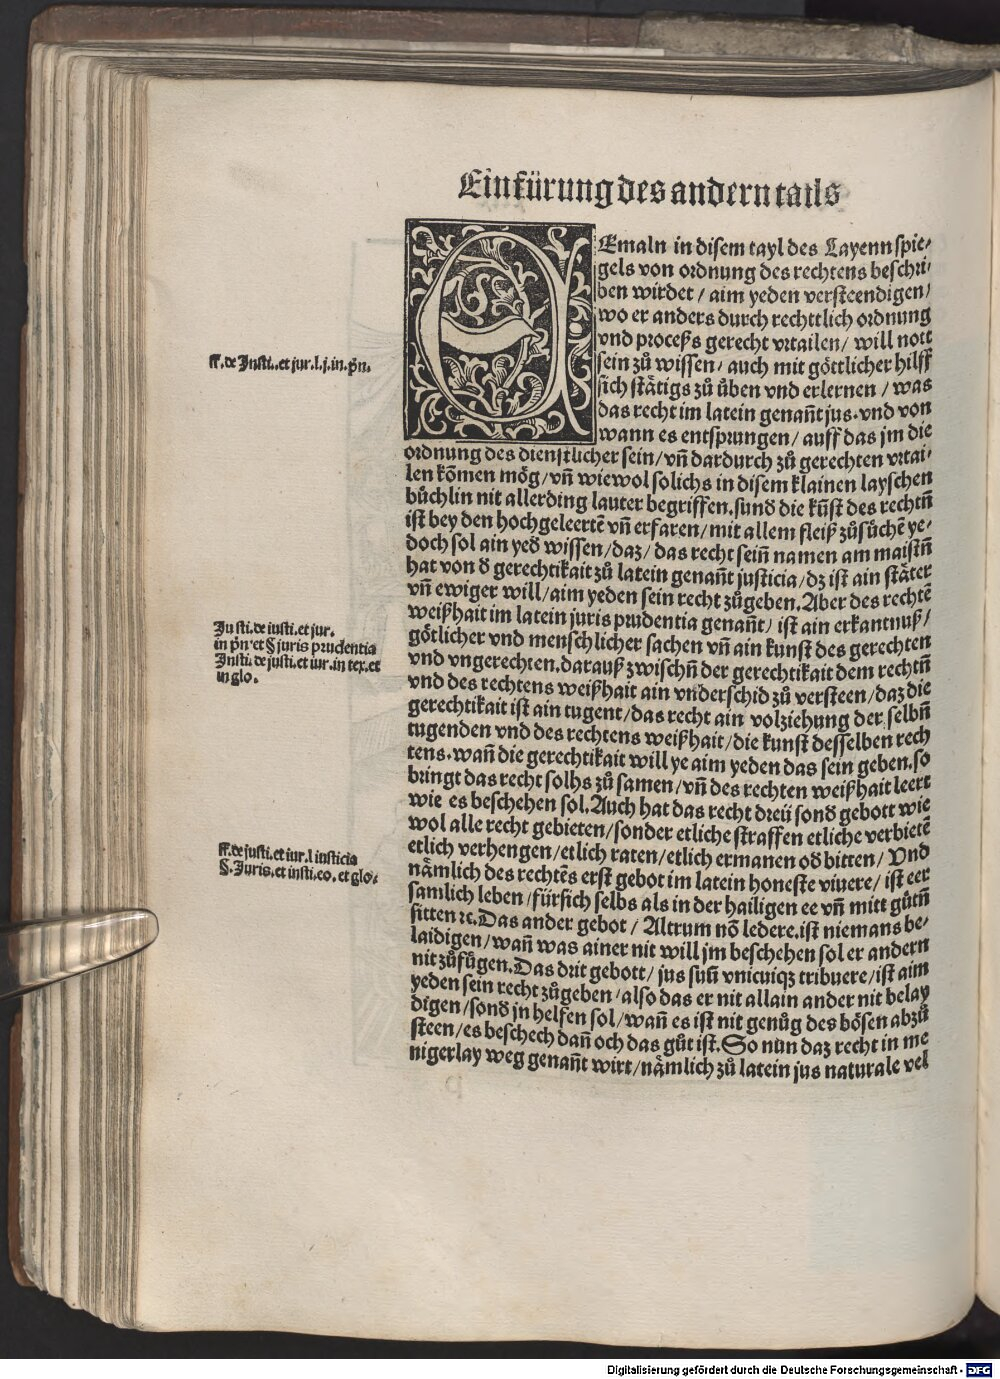 Einfürung des andern tails
EEmaln in disem tayl des Layenn spie⸗
gels von ordnung des rechtens beschri⸗
ben wirdet / aim yeden versteendigen /
wo er anders durch rechttlich ordnung
vnd proceſs gerecht vrtailen / will nott
sein zů wissen / auch mit göttlicher hilff
sich stätigs zů üben vnd erlernen / was
das recht im latein genañt jus. vnd von
wann es entsprungen / auff das jm die
ordnung des dienstlicher sein / vñ dardurch zů gerechten vrtai⸗
len kõmen mög / vñ wiewol solichs in disem klainen layschen
büchlin nit allerding lauter begriffen. sund die kũst des rechtñ
ist bey den hochgeleertẽ vñ erfaren / mit allem fleiß zůsůchẽ ye⸗
doch sol ain yed wissen / daz / das recht seiñ namen am maistñ
hat von d gerechtikait zů latein genañt justicia / dz ist ain stäter
vñ ewiger will / aim yeden sein recht zůgeben. Aber des rechtẽ
weißhait im latein juris prudentia genañt / ist ain erkantnuß /
götlicher vnd menschlicher sachen vñ ain kunst des gerechten
vnd vngerechten. darauß zwischñ der gerechtikait dem rechtñ
vnd des rechtens weißhait ain vnderschid zů versteen / daz die
gerechtikait ist ain tugent / das recht ain volziehung der selbñ
tugenden vnd des rechtens weißhait / die kunst desselben rech
tens. wañ die gerechtikait will ye aim yeden das sein geben. so
bringt das recht solhs zů samen / vñ des rechten weißhait leert
wie es beschehen sol. Auch hat das recht dreü sond gebott wie
wol alle recht gebieten / sonder etliche straffen etliche verbietẽ
etlich verhengen / etlich raten / etlich ermanen od bitten / Vnd
nämlich des rechtẽs erst gebot im latein honeste viuere / ist eer
samlich leben / fürsich selbs als in der hailigen ee vñ mitt gůtñ
sitten ꝛc. Das ander gebot / Altrum nõ ledere. ist niemans be⸗
laidigen / wañ was ainer nit will jm beschehen sol er andern
nit zůfůgen. Das drit gebott / jus suũ vnicuiqꝫ tribuere / ist aim
yeden sein recht zůgeben / also das er nit allain ander nit belay
digen / sond jn helfen sol / wañ es ist nit genůg des bösen abzů
steen / es beschech dañ och das gůt ist. So nün daz recht in me
nigerlay weg genañt wirt / nämlich zů latein jus naturale vel
ff. de Justi. et jur. l. j. in. pñ.
Justi. de iusti. et jur.
in pñ et § juris prudentia
Justi. de justi. et iur. in tex. et
in glo.
ff. de justi. et iur. l iusticia
§. Juris. et insti. eo. et glo.
Digitalisierung gefördert durch die Deutsche Forschungsgemeinschaft - DFG